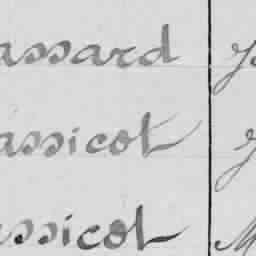 assard
assicot
ssicot M